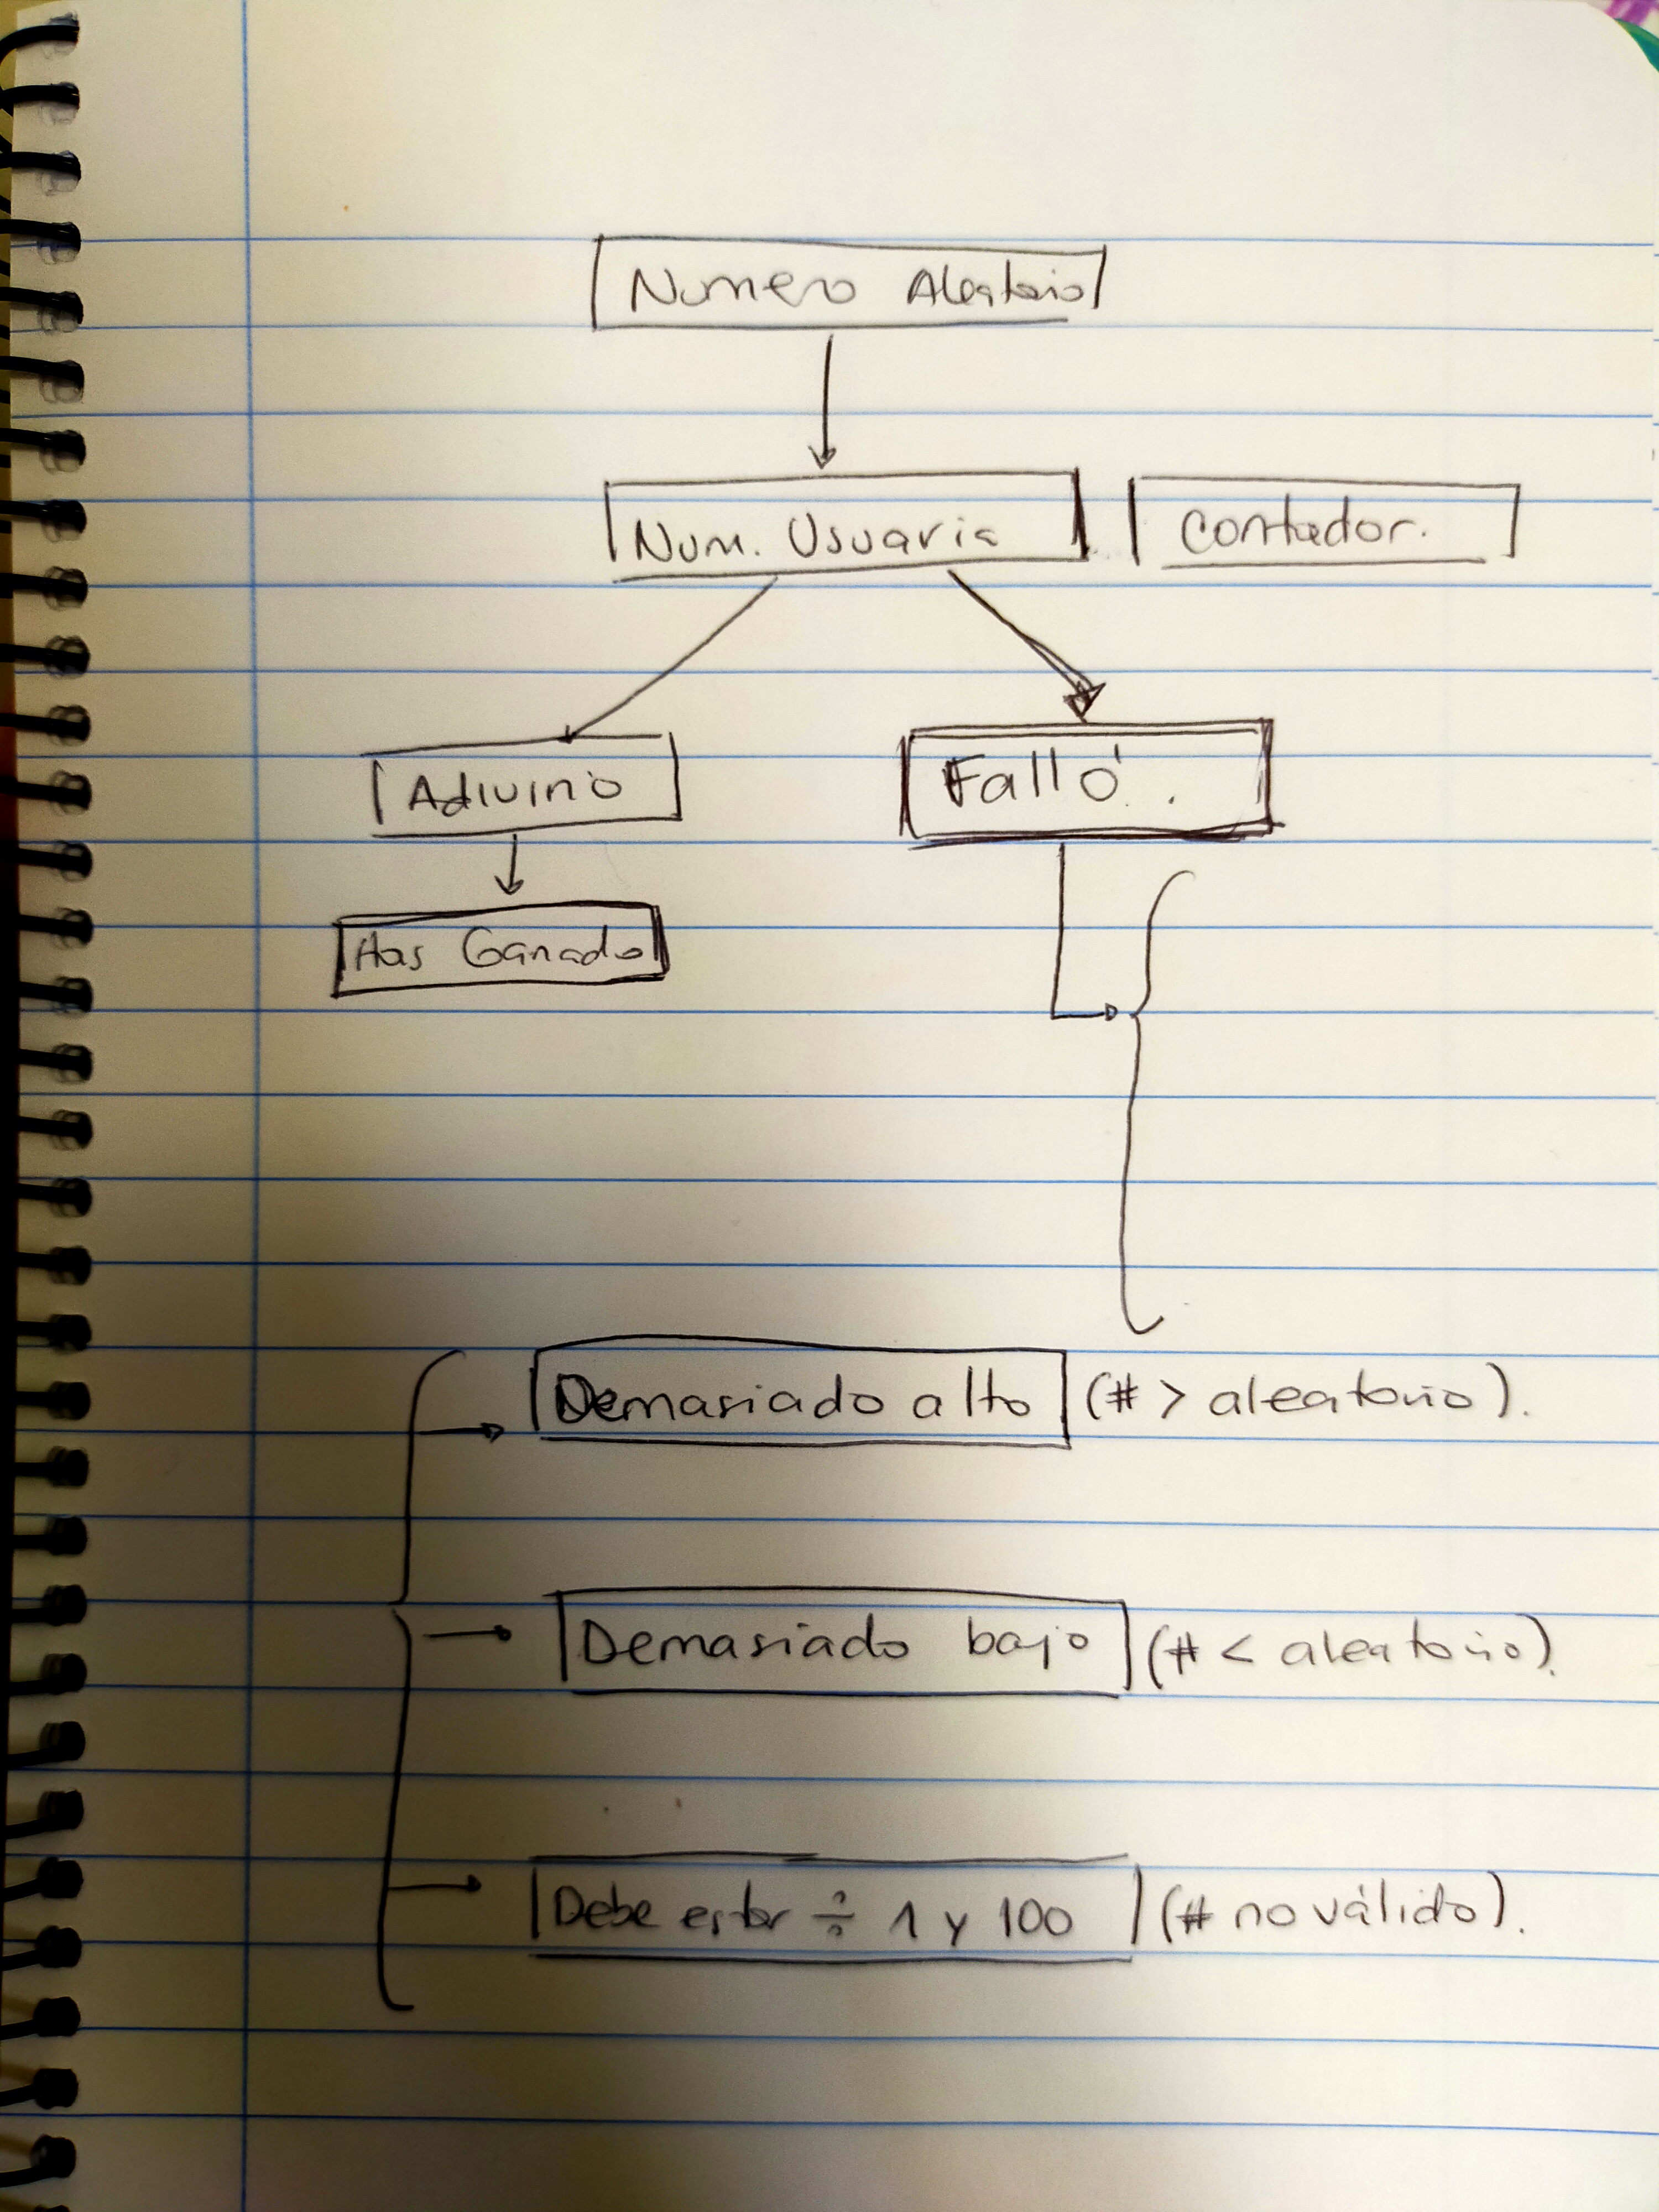 Numero Aleatorio
Num. Usuario
Contador.
Adivino
Falló.
Has Ganado
Demasiado alto (# > aleatorio).
Demasiado bajo (# < aleatorio).
Debe estar ÷ 1 y 100 (# no válido).